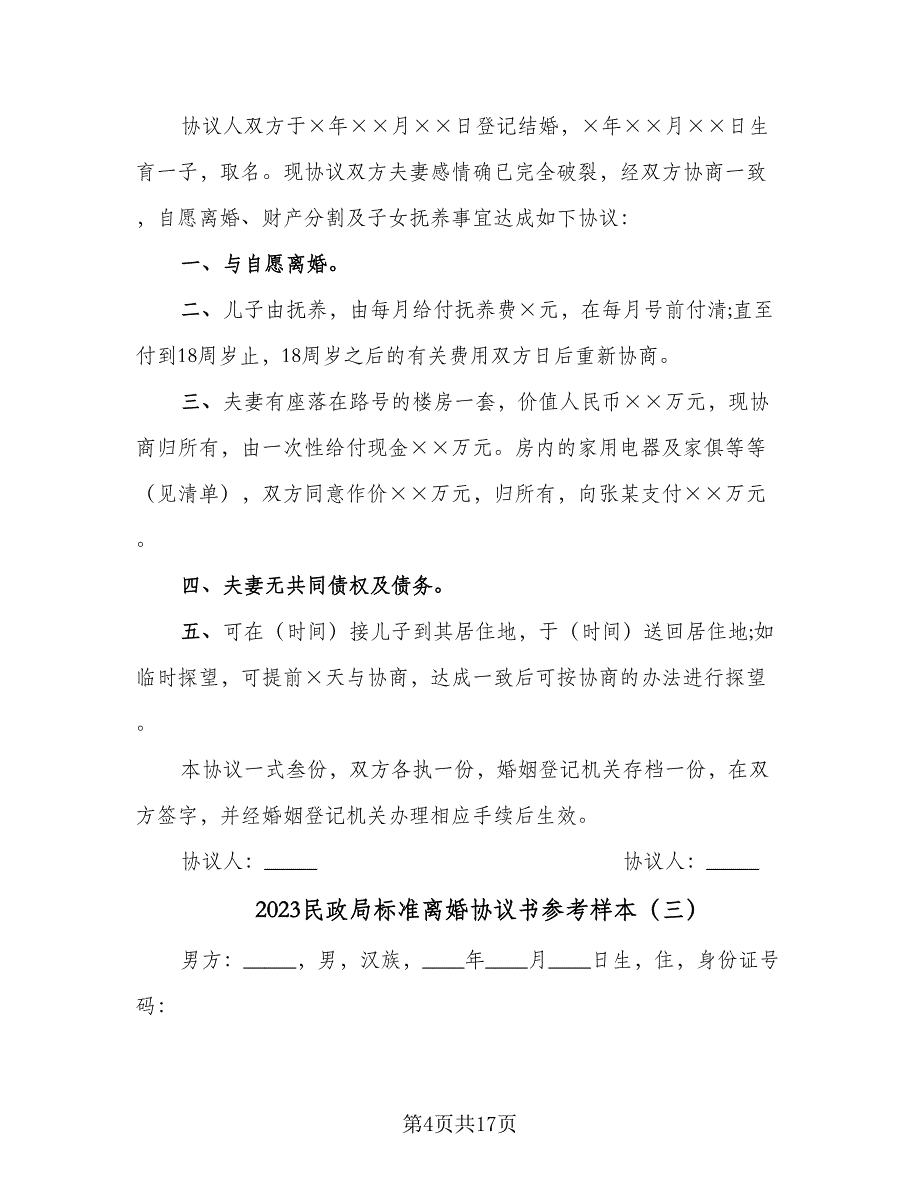 协议人双方于×年××月××日登记结婚，×年××月××日生
育一子，取名。现协议双方夫妻感情确已完全破裂，经双方协商一致
，自愿离婚、财产分割及子女抚养事宜达成如下协议：
一、与自愿离婚。
二、儿子由抚养，由每月给付抚养费×元，在每月号前付清;直至
付到18周岁止，18周岁之后的有关费用双方日后重新协商。
三、夫妻有座落在路号的楼房一套，价值人民币××万元，现协
商归所有，由一次性给付现金××万元。房内的家用电器及家俱等等
（见清单），双方同意作价××万元，归所有，向张某支付××万元
。
四、夫妻无共同债权及债务。
五、可在（时间）接儿子到其居住地，于（时间）送回居住地;如
临时探望，可提前×天与协商，达成一致后可按协商的办法进行探望
。
本协议一式叁份，双方各执一份，婚姻登记机关存档一份，在双
方签字，并经婚姻登记机关办理相应手续后生效。
协议人：_____ 协议人：_____
2023民政局标准离婚协议书参考样本（三）
男方：_____，男，汉族，____年____月____日生，住，身份证号
码：
第4页共17页